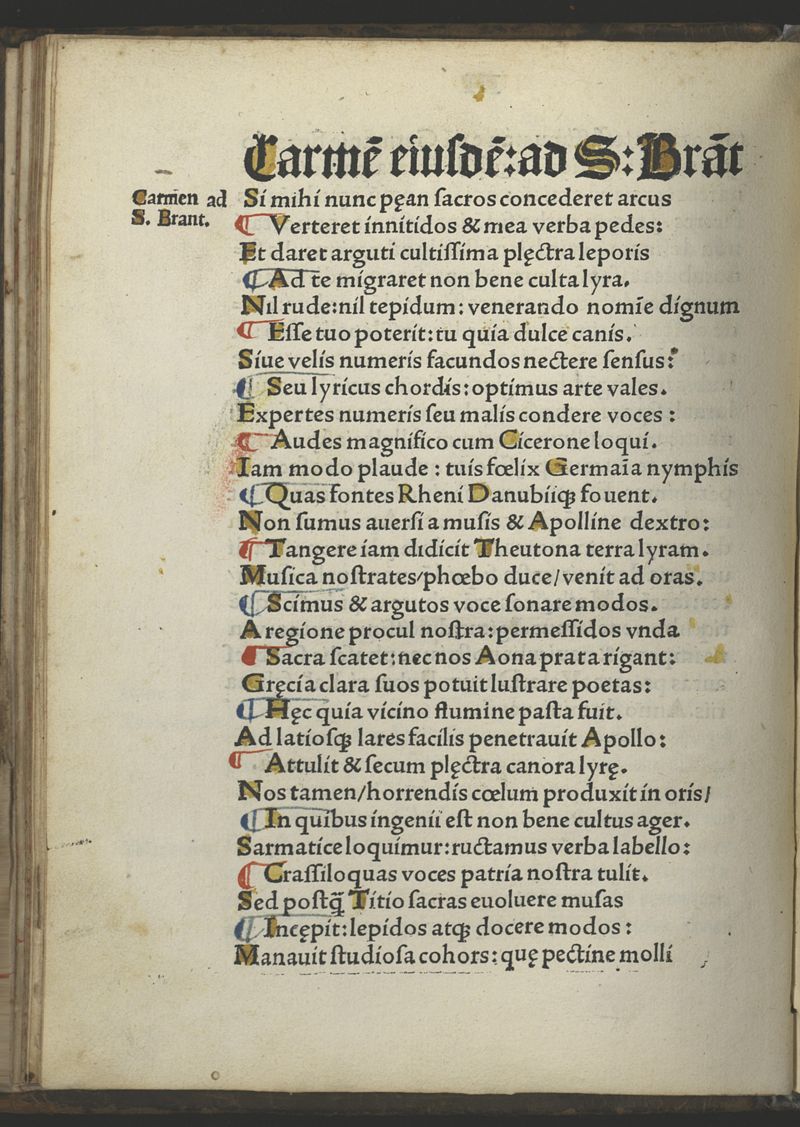 Carmē eiuſdē: ad S: Brāt
Carmen ad
S. Brant.
Si mihi nunc pęan ſacros concederet arcus
Verteret innitidos & mea verba pedes:
Et daret arguti cultiſſima plęctra leporis
Ad te migraret non bene culta lyra.
Nil rude: nil tepidum: venerando nomīe dignum
Eſſe tuo poterit: tu quia dulce canis.
Siue velis numeris facundos nectere ſenſus:
Seu lyricus chordis: optimus arte vales.
Expertes numeris ſeu malis condere voces:
Audes magnifico cum Cicerone loqui.
Iam modo plaude: tuis fœlix Germaīa nymphis
Quas fontes Rheni Danubiiqꝫ fouent.
Non ſumus auerſi a muſis & Apolline dextro:
Tangere iam didicit Theutona terra lyram.
Muſica noſtrates/ phœbo duce/ venit ad oras.
Scimus & argutos voce ſonare modos.
A regione procul noſtra: permeſſidos vnda
Sacra ſcatet: nec nos Aona prata rigant:
Gręcia clara ſuos potuit luſtrare poetas:
Hęc quia vicino flumine paſta fuit.
Ad latioſqꝫ lares facilis penetrauit Apollo:
Attulit & ſecum plęctra canora lyrę.
Nos tamen/ horrendis cœlum produxit in oris/
In quibus ingenii eſt non bene cultus ager.
Sarmatice loquimur: ructamus verba labello:
Craſſiloquas voces patria noſtra tulit.
Sed poſtq̄ Titio ſacras euoluere muſas
Incępit: lepidos atqꝫ docere modos:
Manauit ſtudioſa cohors: quę pectine molli